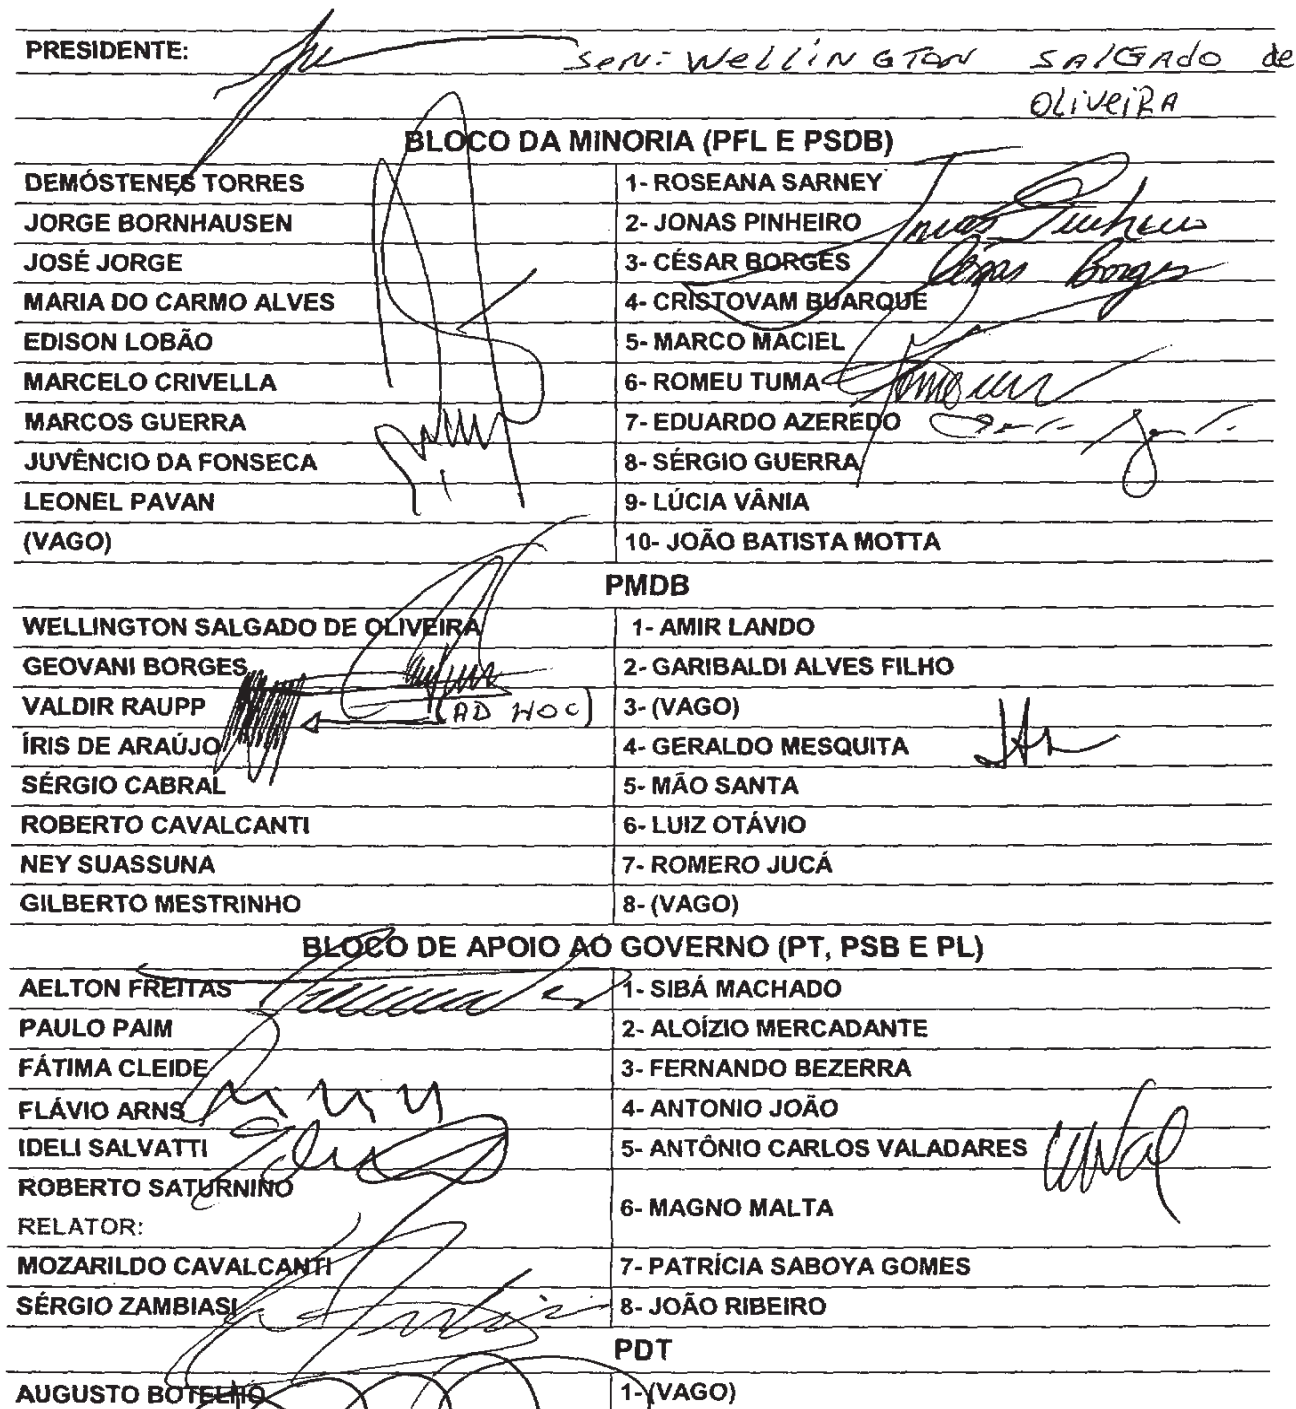 PRESIDENTE: SeN: WellINGTON SALGADO de
OLiveiRA
BLOCO DA MINORIA (PFL E PSDB)
DEMÓSTENES TORRES 1- ROSEANA SARNEY
JORGE BORNHAUSEN 2- JONAS PINHEIRO Jonas Pinheiro
JOSÉ JORGE 3- CÉSAR BORGES César Borges
MARIA DO CARMO ALVES 4- CRISTOVAM BUARQUE
EDISON LOBÃO 5- MARCO MACIEL
MARCELO CRIVELLA 6- ROMEU TUMA
MARCOS GUERRA 7- EDUARDO AZEREDO
JUVÊNCIO DA FONSECA 8- SÉRGIO GUERRA
LEONEL PAVAN 9- LÚCIA VÂNIA
(VAGO) 10- JOÃO BATISTA MOTTA
PMDB
WELLINGTON SALGADO DE OLIVEIRA 1- AMIR LANDO
GEOVANI BORGES 2- GARIBALDI ALVES FILHO
VALDIR RAUPP (AD HOC) 3- (VAGO)
ÍRIS DE ARAÚJO 4- GERALDO MESQUITA
SÉRGIO CABRAL 5- MÃO SANTA
ROBERTO CAVALCANTI 6- LUIZ OTÁVIO
NEY SUASSUNA 7- ROMERO JUCÁ
GILBERTO MESTRINHO 8- (VAGO)
BLOCO DE APOIO AO GOVERNO (PT, PSB E PL)
AELTON FREITAS 1- SIBÁ MACHADO
PAULO PAIM 2- ALOÍZIO MERCADANTE
FÁTIMA CLEIDE 3- FERNANDO BEZERRA
FLÁVIO ARNS 4- ANTONIO JOÃO
IDELI SALVATTI 5- ANTÔNIO CARLOS VALADARES
ROBERTO SATURNINO
6- MAGNO MALTA
RELATOR:
MOZARILDO CAVALCANTI 7- PATRÍCIA SABOYA GOMES
SÉRGIO ZAMBIASI 8- JOÃO RIBEIRO
PDT
AUGUSTO BOTELHO 1- (VAGO)